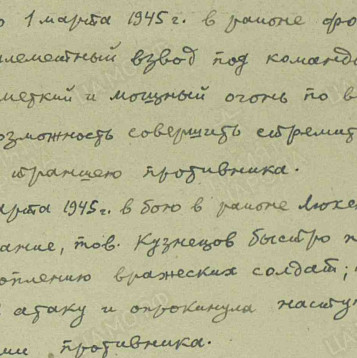 1 марта 1945 г. в районе фо
пулеметный взвод под команды
меткий и мощный огонь по в
возможность совершить стремит
траншею противника.
марта 1945 г. в бою в районе Люке
ание, тов. Кузнецов быстро п
коплению вражеских солдат;
атаку и опрокинула насту
ми противника.